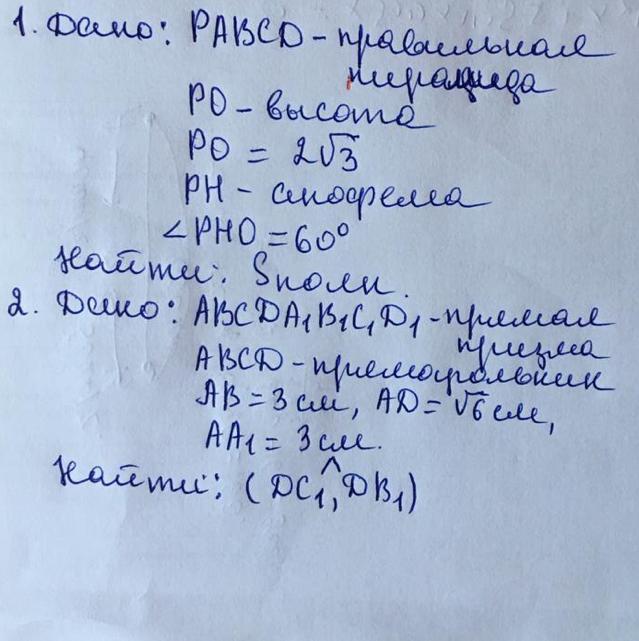 1. Дано: PABCD - правильная
пирамида
PO - высота
PO = 2√3
PH - апофема
∠PHO = 60°
Найти: Sполн.
2. Дано: ABCDA₁B₁C₁D₁ - прямая
призма
ABCD - прямоугольник
AB = 3 см, AD = √6 см,
AA₁ = 3 см.
Найти: (DC₁,^DB₁)